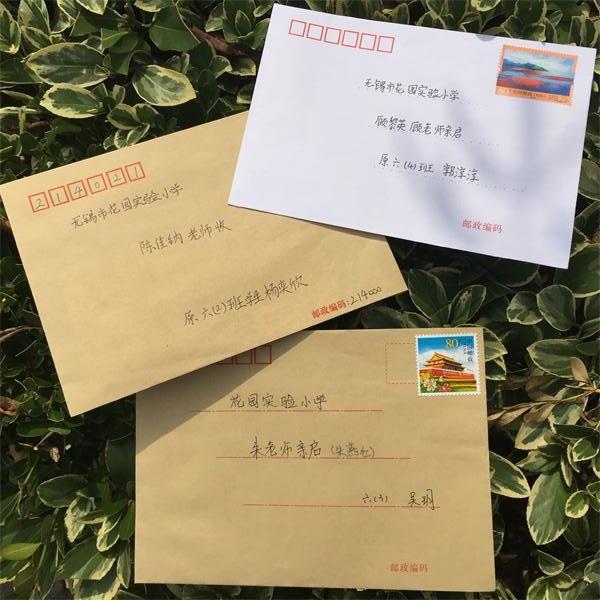 80
无锡市花园实验小学
顾黎英 顾老师亲启
原六(4)班 郭淳淳
邮政编码
214021
无锡市花园实验小学
陈佳纳 老师收
原六(2)班学生杨奕欣
邮政编码:214000
80
花园实验小学
朱老师亲启(朱燕红)
六(3) 吴玥
邮政编码